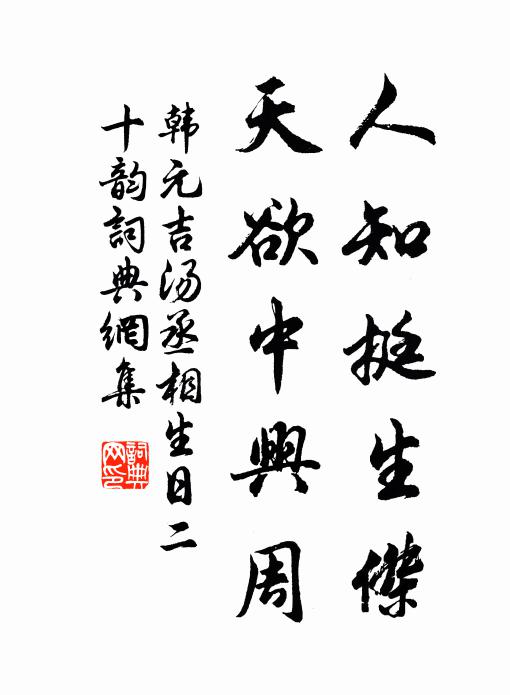 人知挺生傑
天欲中興周
韩元吉汤丞相生日二
十韵詞典網集
詞典
网印